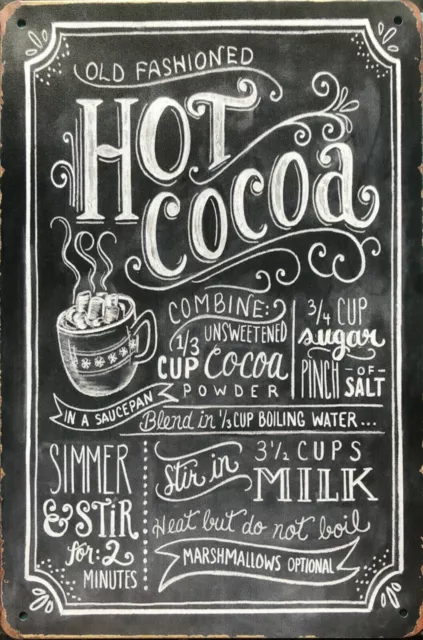 OLD FASHIONED
HOT
COCOA
COMBINE:
1/3 CUP UNSWEETENED
cocoa
POWDER
3/4 CUP
sugar
PINCH -OF- SALT
IN A SAUCEPAN
Blend in 1/3 CUP BOILING WATER...
SIMMER
& STIR
for 2
MINUTES
Stir in
3 1/2 CUPS
MILK
Heat but do not boil
MARSHMALLOWS OPTIONAL